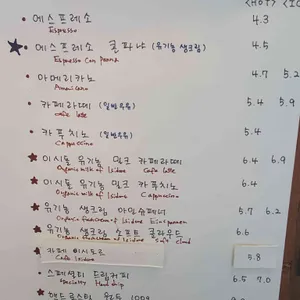 <HOT> <IC
에스프레소 4.3
Espresso
에스프레소 콘파냐 (유기농 생크림) 4.5
Espresso Con panna
아메리카노 4.7 5.2
Americano
카페라떼 (일반우유) 5.4 5.9
cafe latte
카푸치노 (일반우유) 5.4
Cappuccino
이시돌 유기농 밀크 카페라떼 6.4 6.9
Organic milk of Isidore Cafe latte
이시돌 유기농 밀크 카푸치노 6.4
Organic milk of Isidore Cappuccino
유기농 생크림 아인슈페너 5.7 6.2
Organic of Isidore Einspanner
유기농 생크림 소프트 클라우드 6.6
Organic of Isidore cloud
카페 이시도르 5.8
Cafe Isidore
스페셜티 드립커피 6.5 7.0
Specialty Hand drip